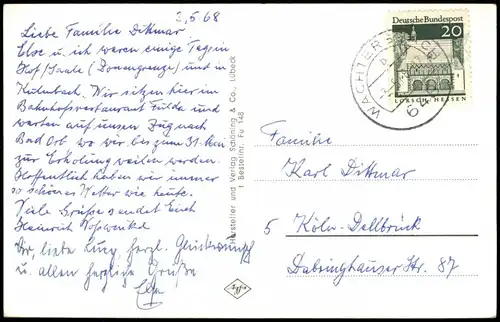 2,5 68
Liebe Familie Dittmar
Else u. ich waren einige Tage in
Hof/Saale (Zonengrenze) und in
Kulmbach. Wir sitzen hier im
Bahnhofsrestaurant Fulda und
warten auf unsern Zug nach
Bad Orb wo wir bis zum 31. Mai
zur Erholung weilen werden.
Hoffentlich haben wir immer
so schönes Wetter wie heute.
Viele Grüsse sendet Euch
Heinrich
liebe herzl. Glückwunsch
u. allen herzliche Grüße
Else
Hersteller und Verlag Schöning & Co., Lübeck
† Bestellnr. Fu 148
Agfa
Deutsche Bundespost
20
LORSCH/HESSEN
WÄCHTERSBACH
Familie
Karl Dittmar
5 Köln-Dellbrück
Dabringhauser Str. 87